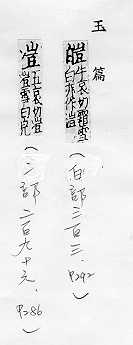 玉篇
皚牛哀切霜雪白亦作凒
（白部三百三．P292）
凒五哀切凒凒雪白皃
（冫部二百九十六．P286）